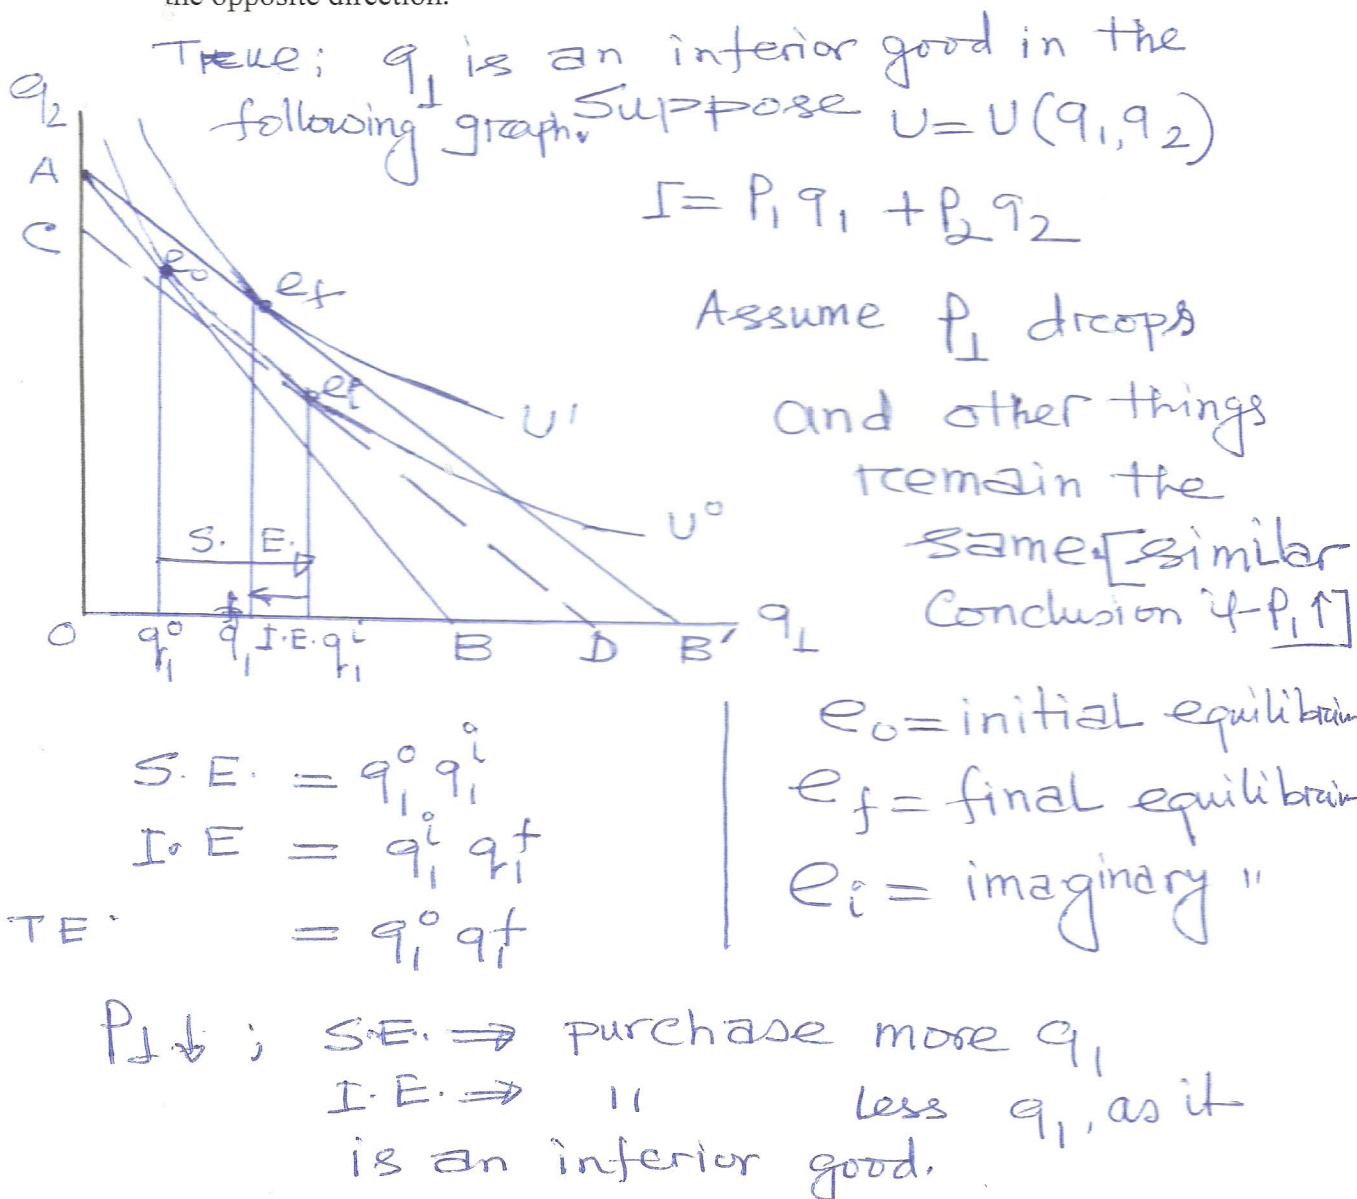 the opposite direction.
True; q₁ is an inferior good in the
following graph. Suppose U = U(q₁, q₂)
I = P₁q₁ + P₂q₂
Assume P₁ drops
and other things
remain the
same. [similar
Conclusion if P₁↑]
q₂
A
C
e₀
e_f
e_i
U'
U⁰
S. E.
I.E.
O
q₁⁰
q₁ᶠ
q₁ⁱ
B
D
B'
q₁
S.E. = q₁⁰ q₁ⁱ
I.E = q₁ⁱ q₁ᶠ
TE = q₁⁰ q₁ᶠ
e₀ = initial equilibrium
e_f = final equilibrium
e_i = imaginary "
P₁↓ ; S.E. ⇒ purchase more q₁
I.E. ⇒ " less q₁, as it
is an inferior good.